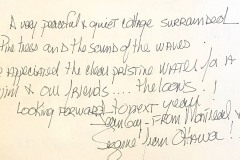 A very peaceful & quiet cottage surrounded
Pine trees and the sound of the waves
appreciated the clean pristine water for a
& our friends .... the loons !
Looking forward to next year
Jean Guy - from Montreal &
from Ottawa !